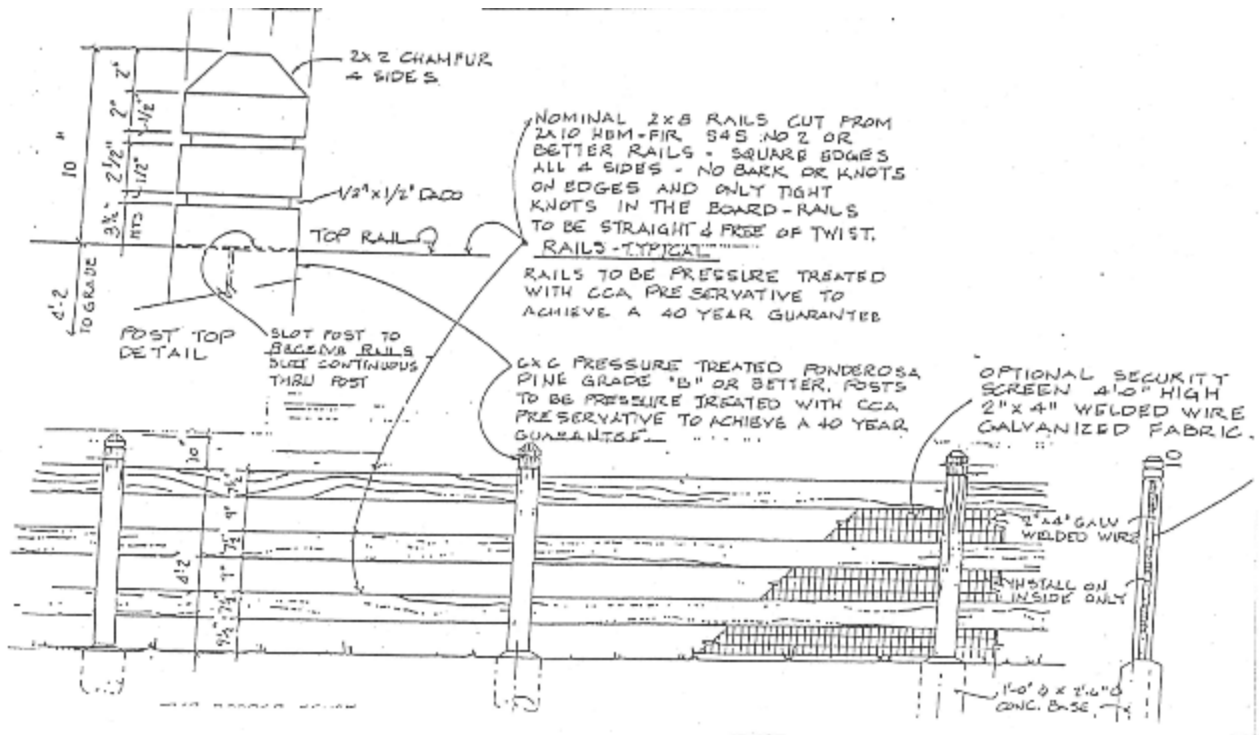 2X2 CHAMFUR
4 SIDES
2"
2"
1/2"
2 1/2"
1/2"
10"
1/2" X 1/2" DADO
TOP RAIL
4'-2
TO GRADE
POST TOP
DETAIL
SLOT POST TO
RECEIVE RAILS
CONTINUOUS
THRU POST
NOMINAL 2X8 RAILS CUT FROM
2X10 HEM-FIR S4S NO 2 OR
BETTER RAILS - SQUARE EDGES
ALL 4 SIDES - NO BARK OR KNOTS
ON EDGES AND ONLY TIGHT
KNOTS IN THE BOARD - RAILS
TO BE STRAIGHT & FREE OF TWIST.
RAILS - TYPICAL
RAILS TO BE PRESSURE TREATED
WITH CCA PRESERVATIVE TO
ACHIEVE A 40 YEAR GUARANTEE
6X6 PRESSURE TREATED PONDEROSA
PINE GRADE "B" OR BETTER. POSTS
TO BE PRESSURE TREATED WITH CCA
PRESERVATIVE TO ACHIEVE A 40 YEAR
GUARANTEE.
OPTIONAL SECURITY
SCREEN 4'0" HIGH
2" X 4" WELDED WIRE
GALVANIZED FABRIC.
10"
7 1/2"
9"
7 1/2"
9"
4'-2
2" X 4" GALV
WELDED WIRE
INSTALL ON
INSIDE ONLY
CONC. BASE